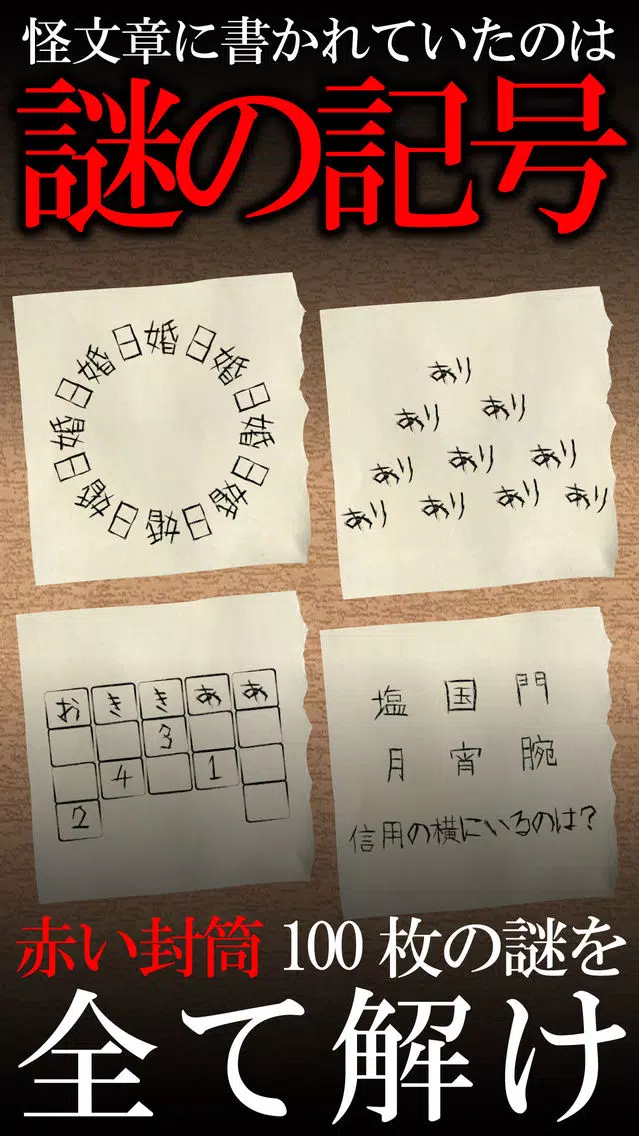 怪文章に書かれていたのは
謎の記号
日婚日婚日婚日婚日婚日婚日婚日婚
あり
あり あり
あり あり あり
あり あり あり あり
お き き あ あ
3
4 1
2
塩 国 門
月 宵 腕
信用の横にいるのは?
赤い封筒 100 枚の謎を
全て解け